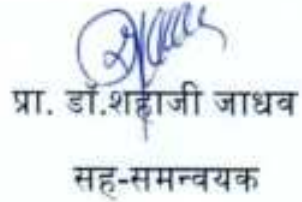 प्रा. डॉ.शहाजी जाधव
सह-समन्वयक